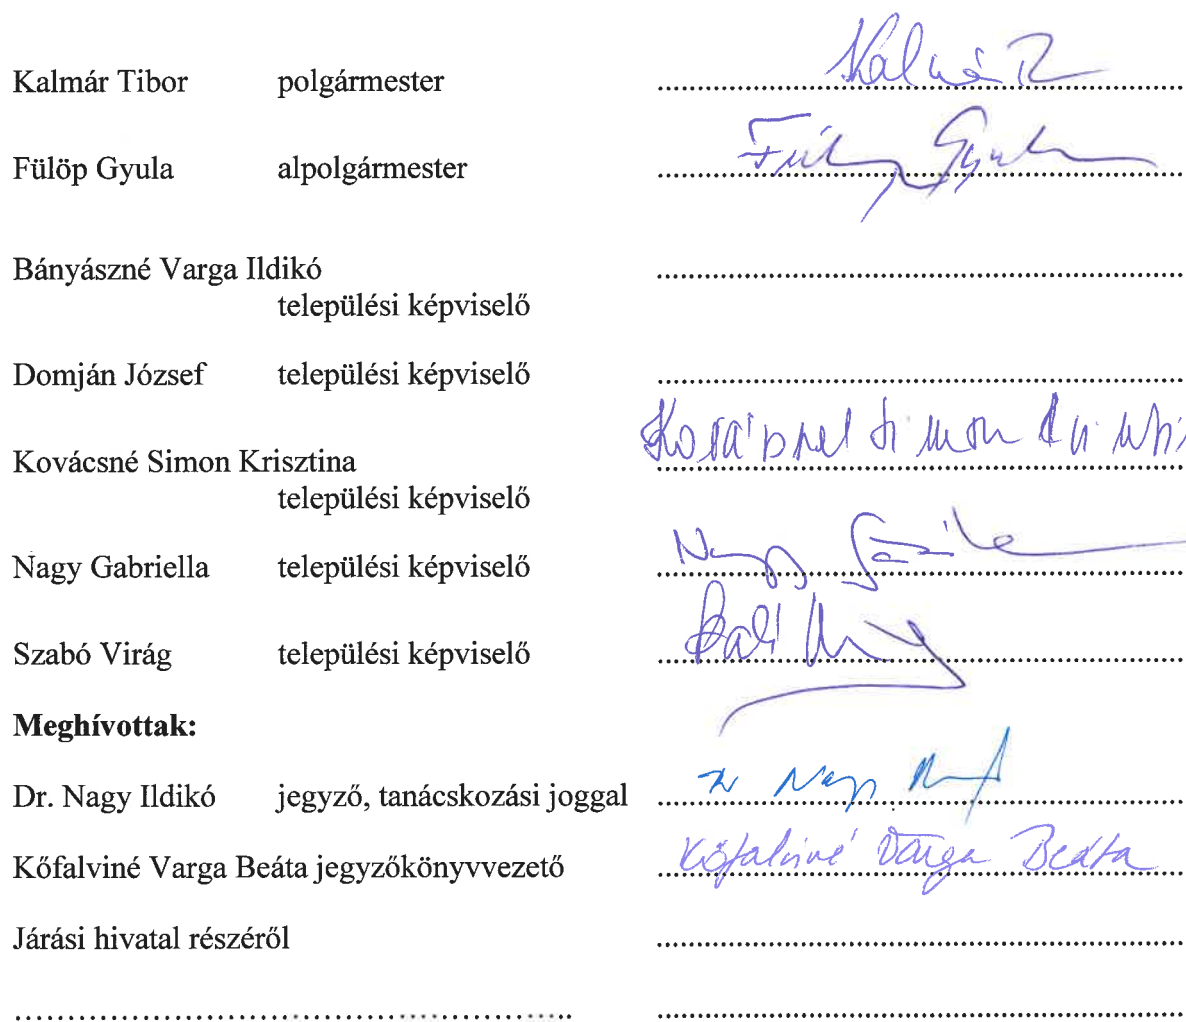 Kalmár Tibor polgármester ........................ Kalmár T
Fülöp Gyula alpolgármester ........................ Fülöp Gyula
Bányászné Varga Ildikó ........................
települési képviselő
Domján József települési képviselő ........................
Kovácsné Simon Krisztina ........................ Kovácsné Simon
települési képviselő
Nagy Gabriella települési képviselő ........................ Nagy
Szabó Virág települési képviselő ........................
Meghívottak:
Dr. Nagy Ildikó jegyző, tanácskozási joggal ........................ Dr Nagy
Kőfalviné Varga Beáta jegyzőkönyvvezető ........................ Kőfalviné Varga Beáta
Járási hivatal részéről ........................
........................ ........................